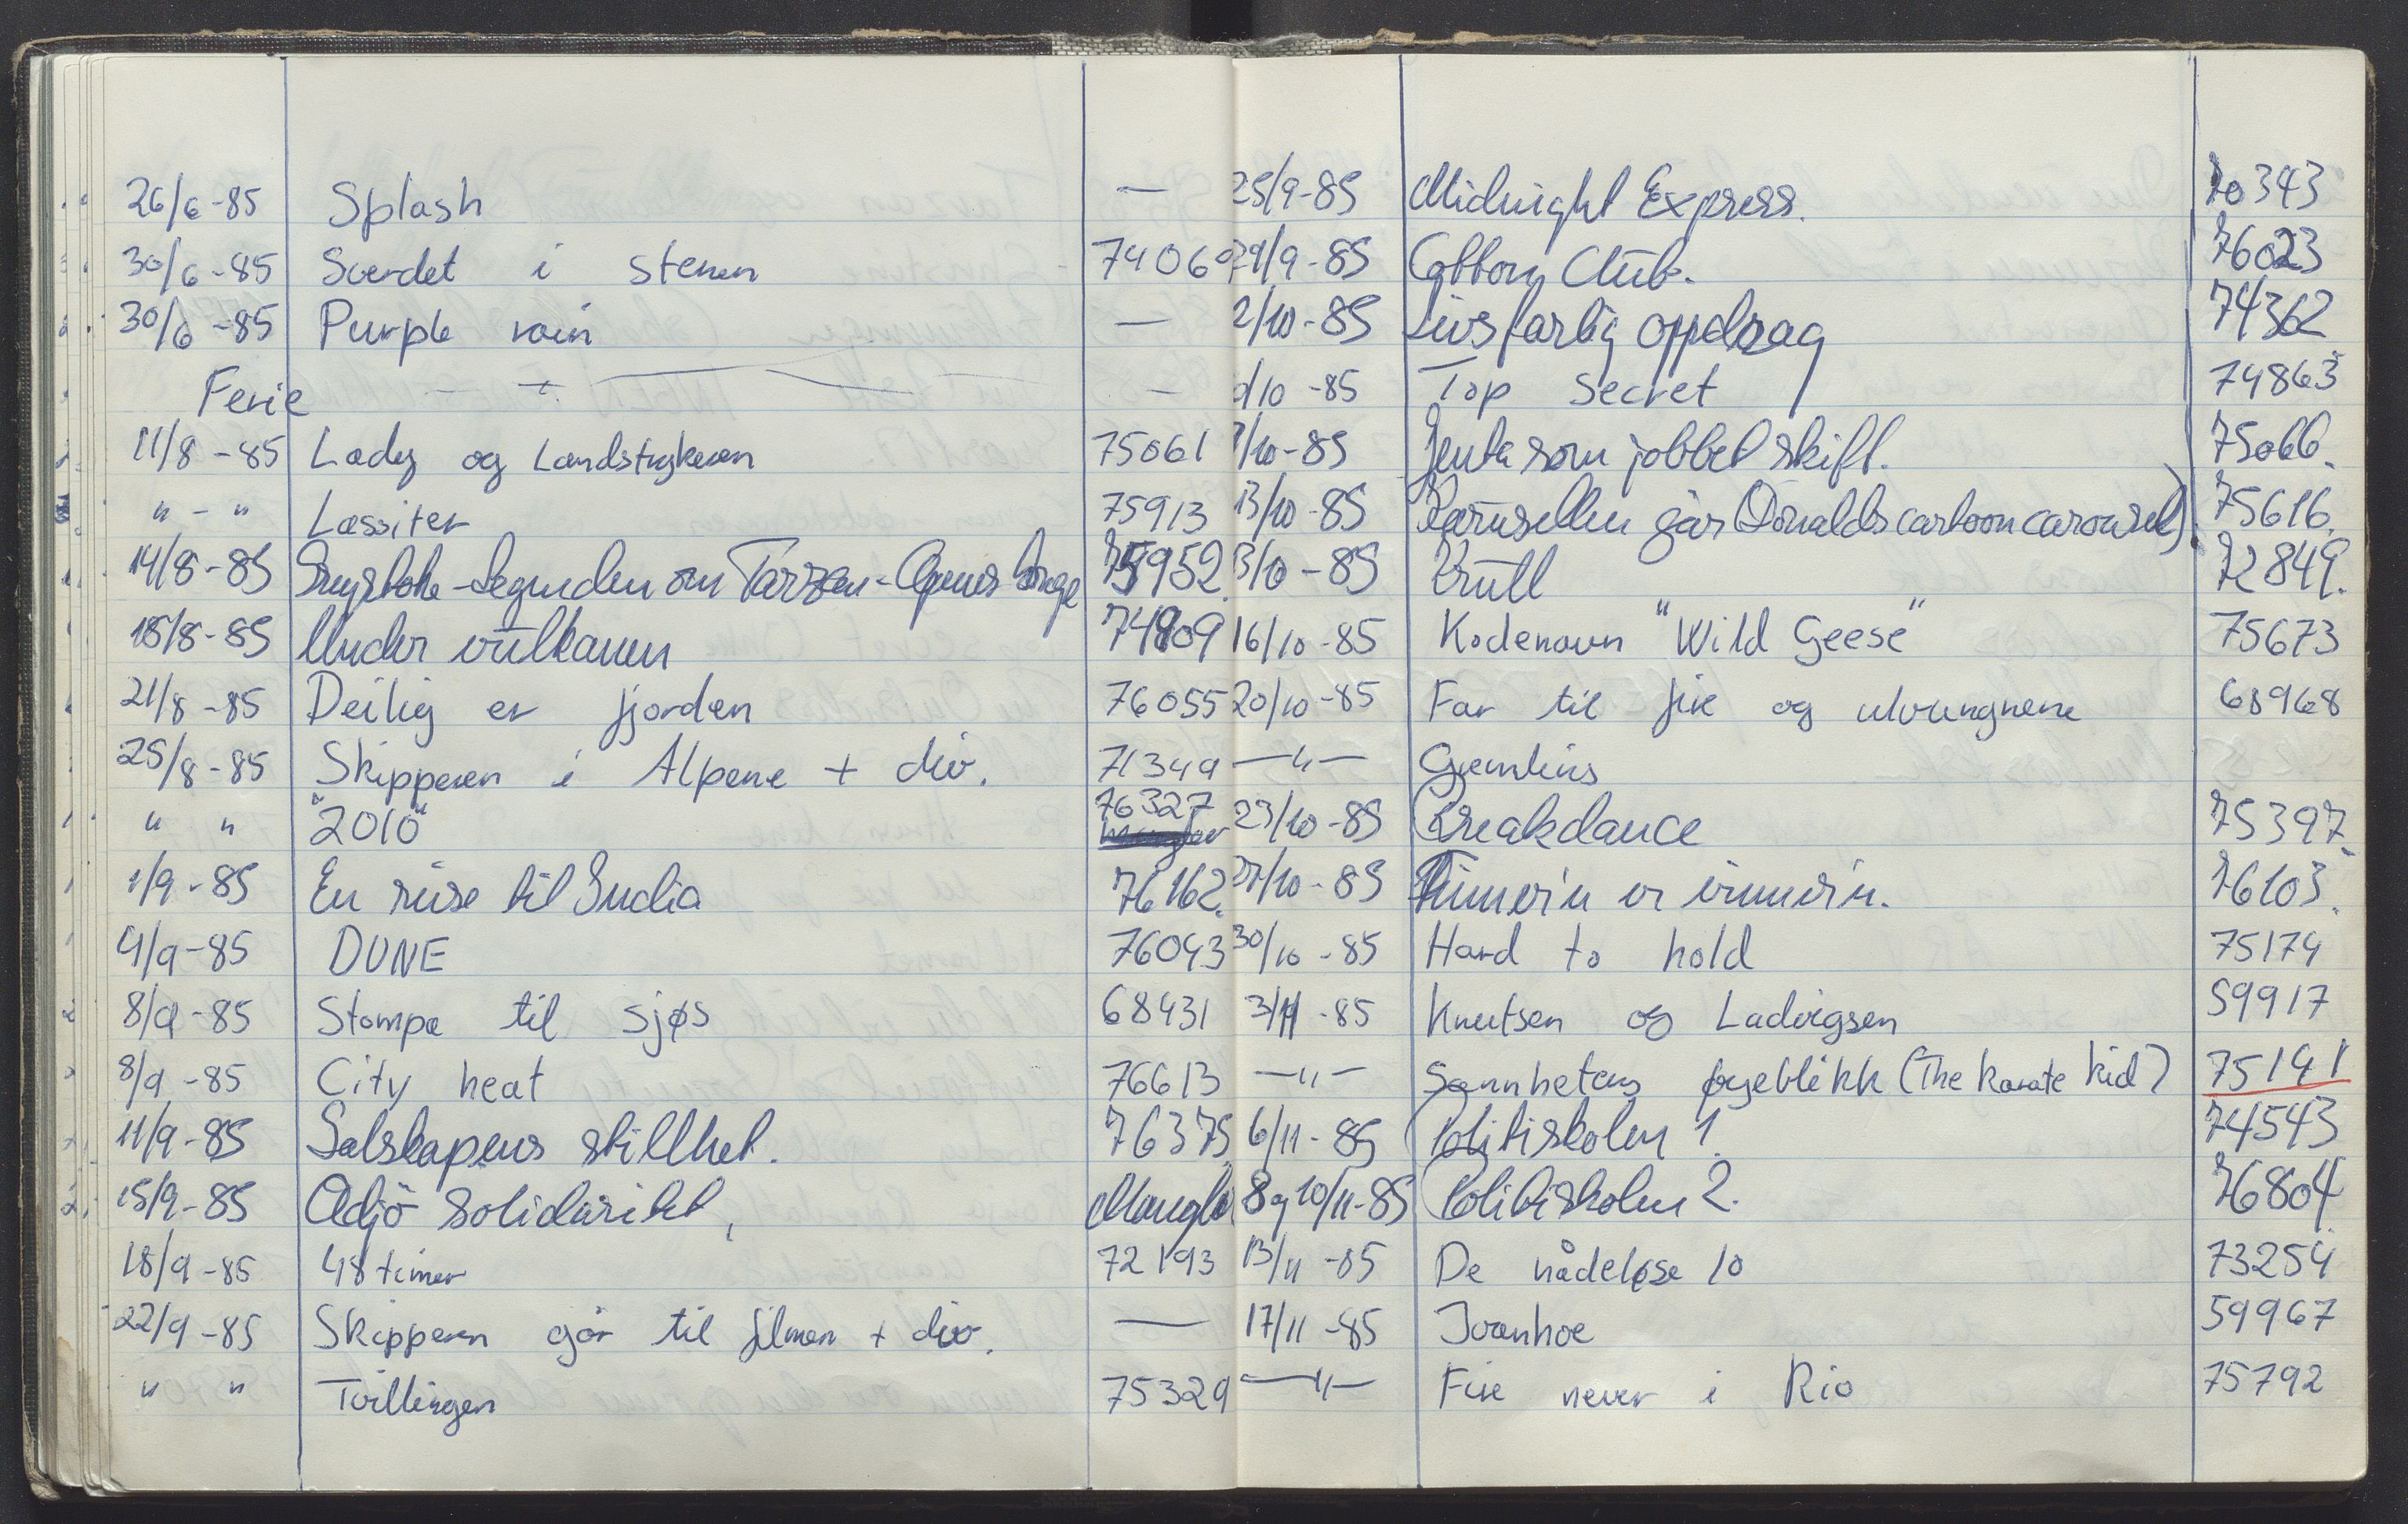 26/6-85 Splash —
30/6-85 Sverdet i stenen 74060
30/6-85 Purple rain —
Ferie — —
11/8-85 Lady og Landstrykeren 75061
" - " Lassiter 75913
14/8-85 Greystoke-Legenden om Tarzan-Apenes konge 75952.
18/8-85 Under vulkanen 74909
21/8-85 Deilig er fjorden 76055
25/8-85 Skipperen i Alpene + div. 71349
" " "2010" 76327
1/9-85 En reise til India 76162.
4/9-85 DUNE 76043
8/9-85 Stompa til sjøs 68431
8/9-85 City heat 76613
11/9-85 Selskapens stillhet. 76375
15/9-85 Adjö solidaritet, Mangler
18/9-85 48 timer 72193
22/9-85 Skipperen går til filmen + div. —
" " Tvillingen 75329
25/9-85 Midnight Express. 70343
29/9-85 Cotton Club. 76023
2/10-85 Livsfarlig oppdrag 74362
/10-85 Top Secret 74863
/10-85 Jenta som jobbet skift. 75066.
13/10-85 Karusellen går (Donalds cartoon carousel). 75616.
13/10-85 Krull 72849.
16/10-85 Kodenavn "Wild Geese" 75673
20/10-85 Far til fire og ulveungene 68968
—"— Gremlins
23/10-85 Breakdance 75397.
27/10-85 Himmel'n erimmel'n. 76103.
30/10-85 Hard to hold 75174
3/11-85 Knutsen og Ludvigsen 59917
—"— Sannhetens øyeblikk (The karate kid) 75141
6/11-85 Politiskolen 1. 74543
8 og 10/11-85 Politiskolen 2. 76804
13/11-85 De nådeløse 10 73254
17/11-85 Ivanhoe 59967
—"— Fire never i Rio 75792